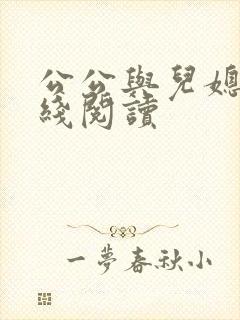 公公與兒媳
綫閱讀
一夢春秋小